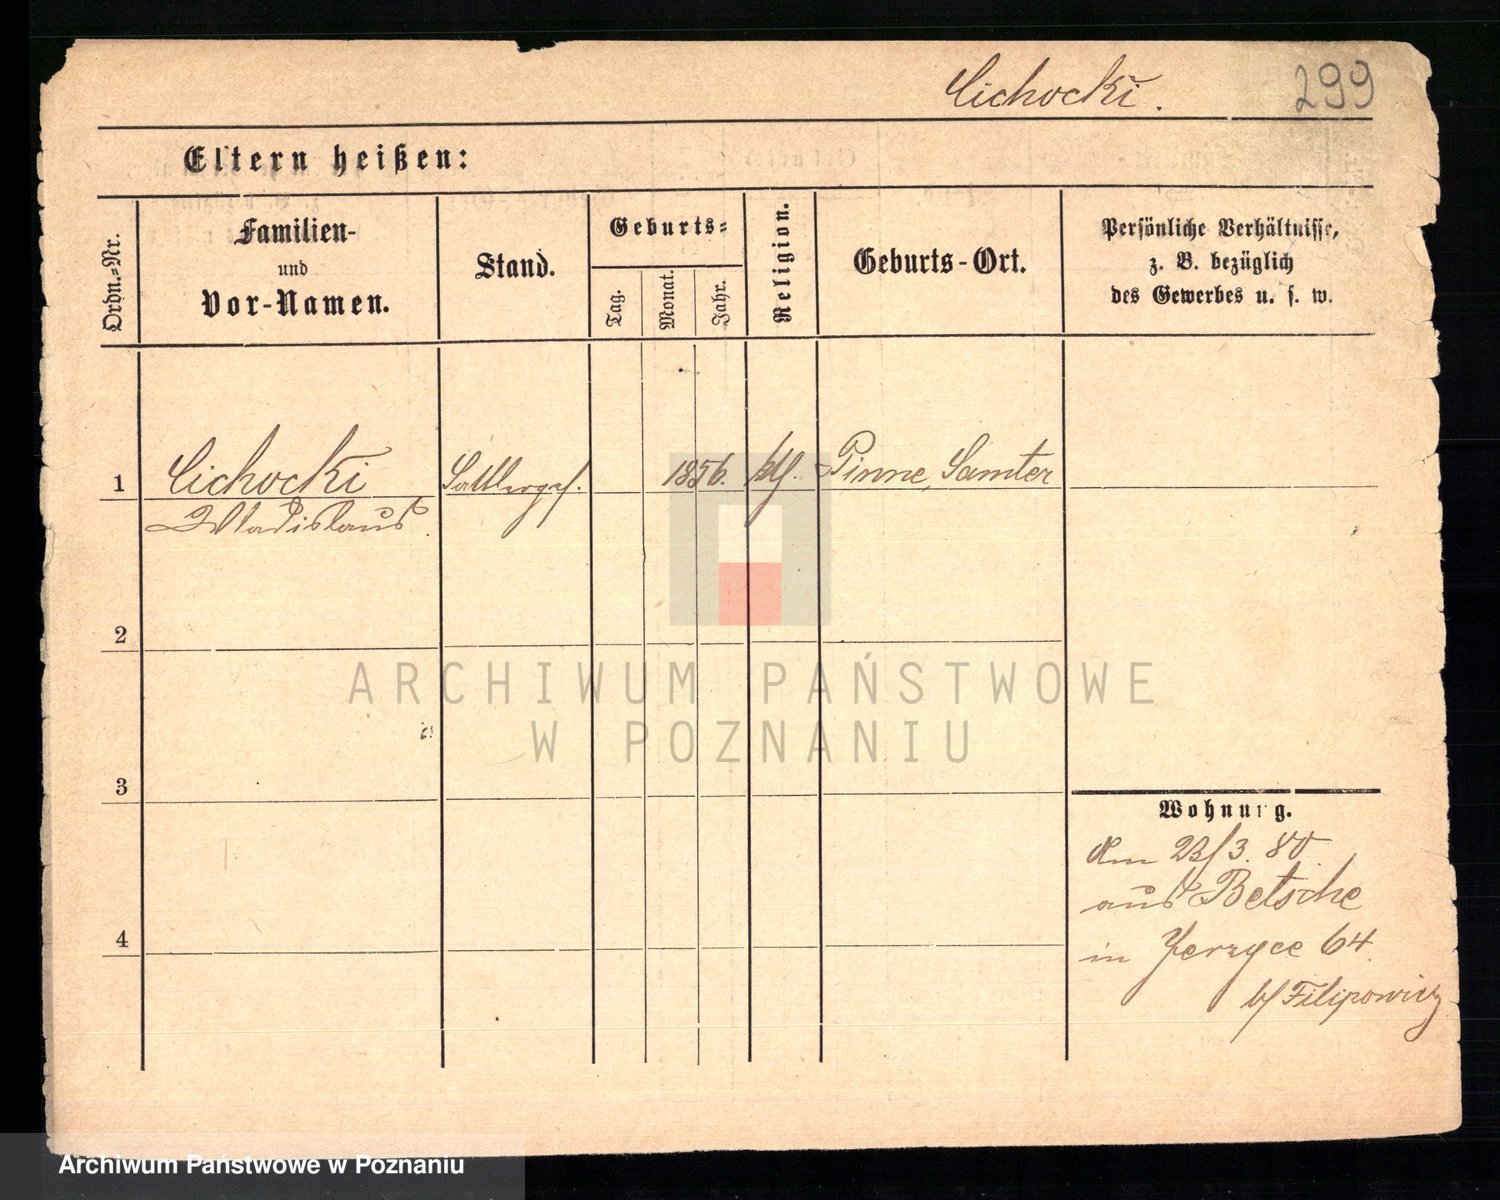 Cichocki.
299
Eltern heißen:
Ordn.-Nr.
Familien-
und
Vor-Namen.
Stand.
Geburts-
Tag.
Monat.
Jahr.
Religion.
Geburts-Ort.
Persönliche Verhältnisse,
z. B. bezüglich
des Gewerbes u. s. w.
1
Cichocki
Wladislaus
Sattlerges.
1856.
kth.
Pinne, Samter
2
3
4
Wohnung.
Am 23/3. 80.
aus Betsche
in Jerzyce 64.
b/ Filipowicz
ARCHIWUM PAŃSTWOWE
W POZNANIU
Archiwum Państwowe w Poznaniu